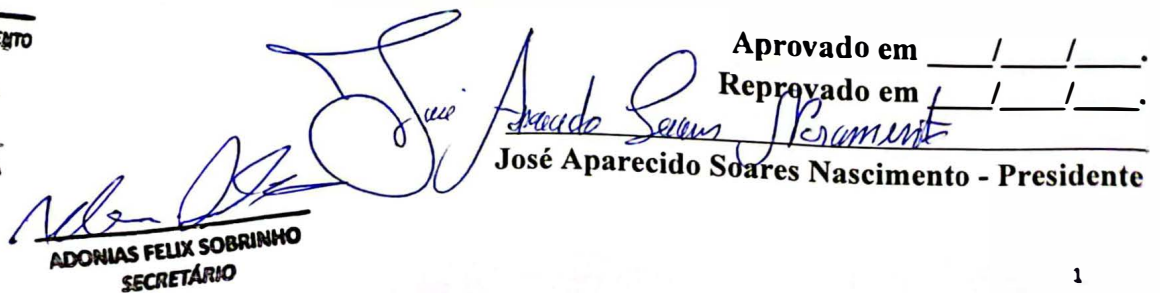 ENTO
Aprovado em ____/____/____.
Reprovado em ____/____/____.
José Aparecido Soares Nascimento
José Aparecido Soares Nascimento - Presidente
ADONIAS FELIX SOBRINHO
SECRETÁRIO
1